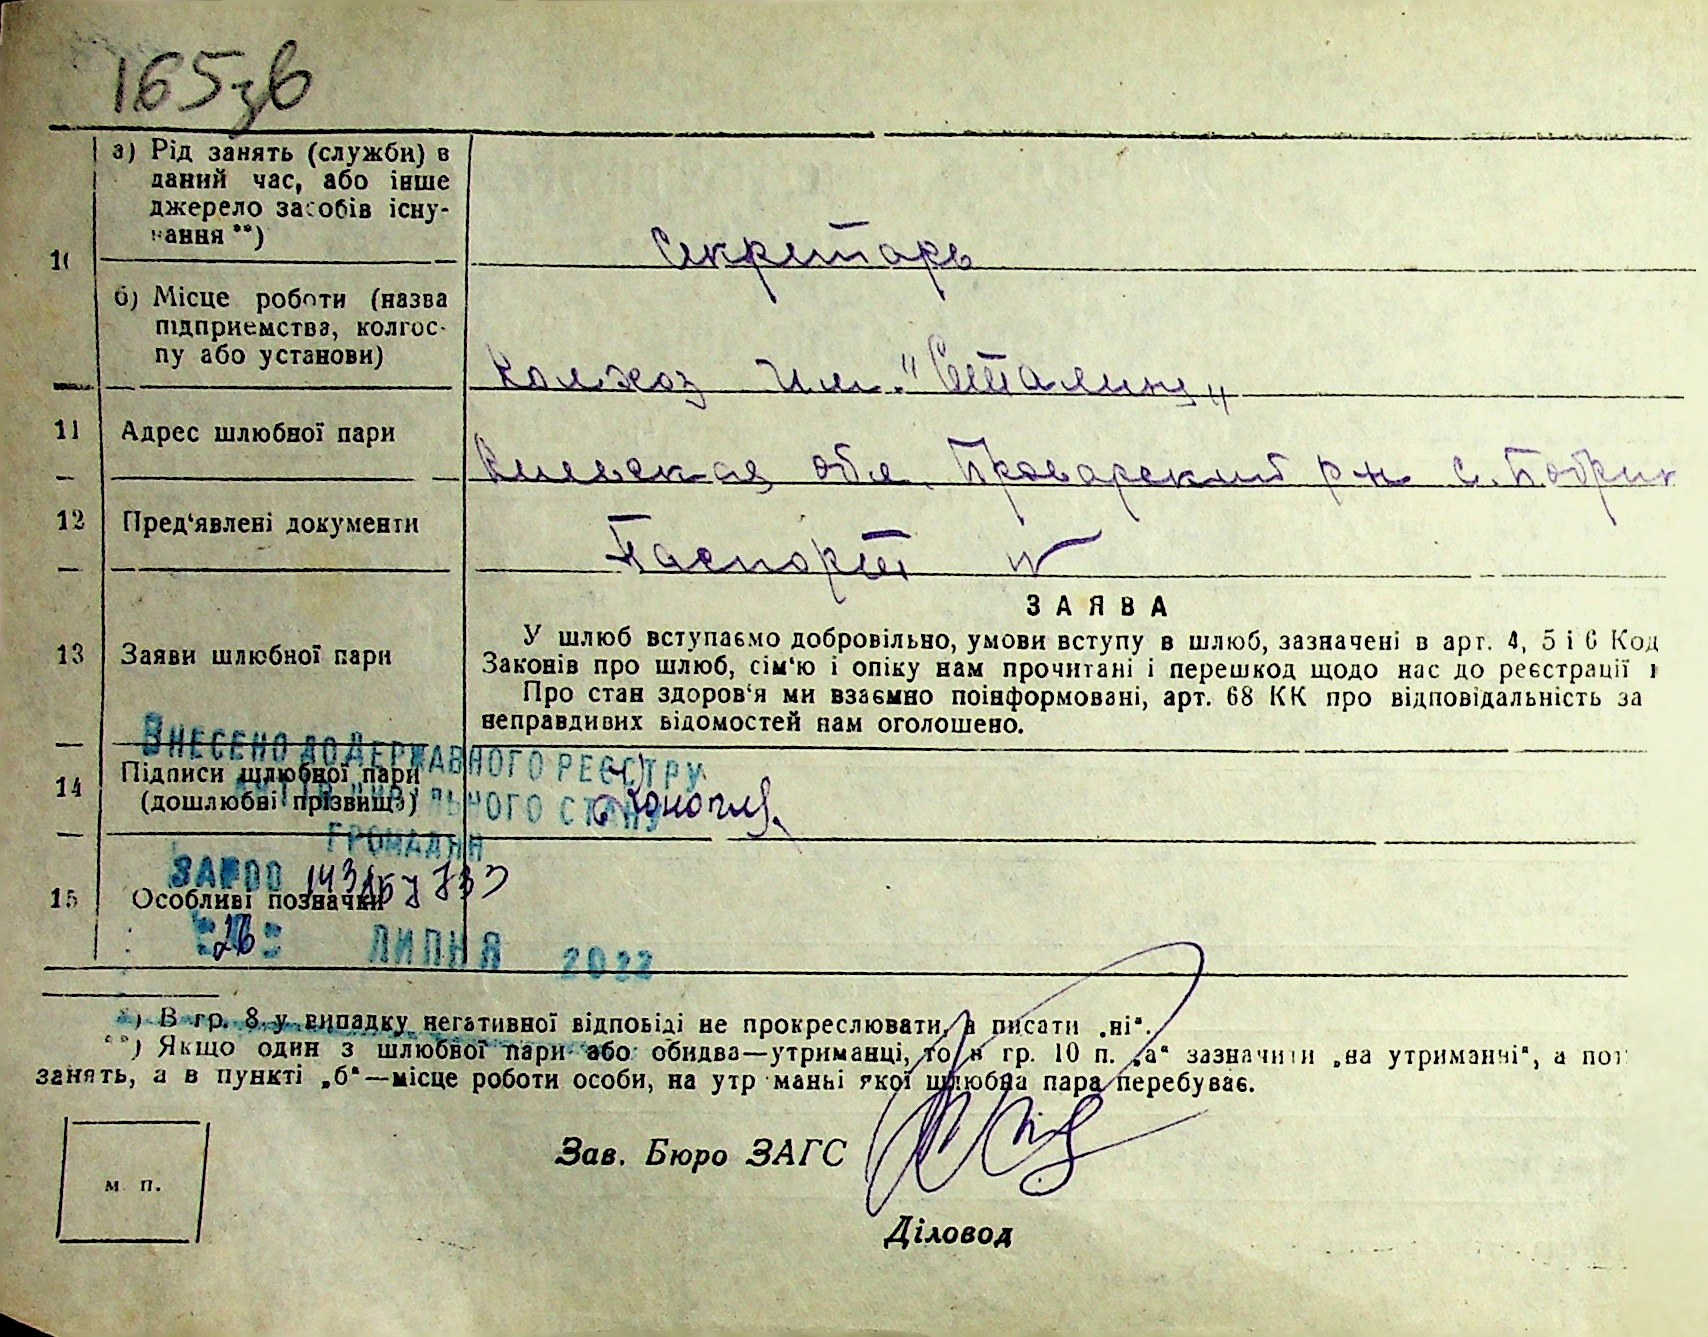 165зв
10
а) Рід занять (служби) в
даний час, або інше
джерело засобів існу-
вання **)
Секретарь
б) Місце роботи (назва
підприємства, колгос-
пу або установи)
Колхоз им. "Сталина"
11 Адрес шлюбної пари
Киевская обл. Броварский р-н с. Бобрик
12 Пред‘явлені документи
Паспорт
13 Заяви шлюбної пари
ЗАЯВА
У шлюб вступаємо добровільно, умови вступу в шлюб, зазначені в арт. 4, 5 і 6 Код
Законів про шлюб, сім‘ю і опіку нам прочитані і перешкод щодо нас до реєстрації
Про стан здоров‘я ми взаємно поінформовані, арт. 68 КК про відповідальність за
неправдивих відомостей нам оголошено.
ВНЕСЕНО ДО ДЕРЖАВНОГО РЕЄСТРУ
14 Підписи шлюбної пари
(дошлюбні прізвища)
АКТІВ ЦИВІЛЬНОГО СТАНУ
ГРОМАДЯН
15 Особливі позначки
26 ЛИПНЯ 2022
*) В гр. 8 у випадку негативної відповіді не прокреслювати, а писати „ні“.
**) Якщо один з шлюбної пари або обидва—утриманці, то в гр. 10 п. „а“ зазначити „на утриманні“, а пот
занять, а в пункті „б“—місце роботи особи, на утр манні якої шлюбна пара перебуває.
Зав. Бюро ЗАГС
м. п.
Діловод